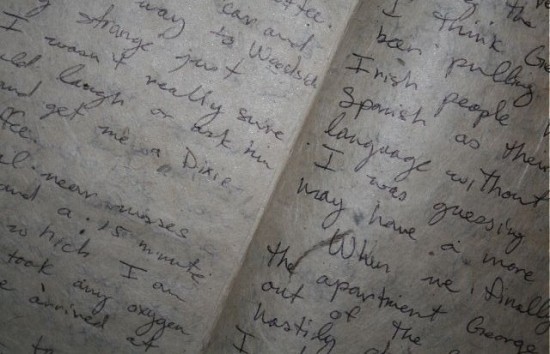 ffee.
car and
way to Woodside
strange just
I wasn't really sure
ld laugh or ask him
and get me a Dixie
ffee.
al near misses
and a 15 minute
which I am
took any oxygen
e arrived at
to
the
I think Geo
been pulling
Irish people
Spanish as their
language without
I was guessing
may have a more
When we finally
the apartment George
out of the
hastily
I